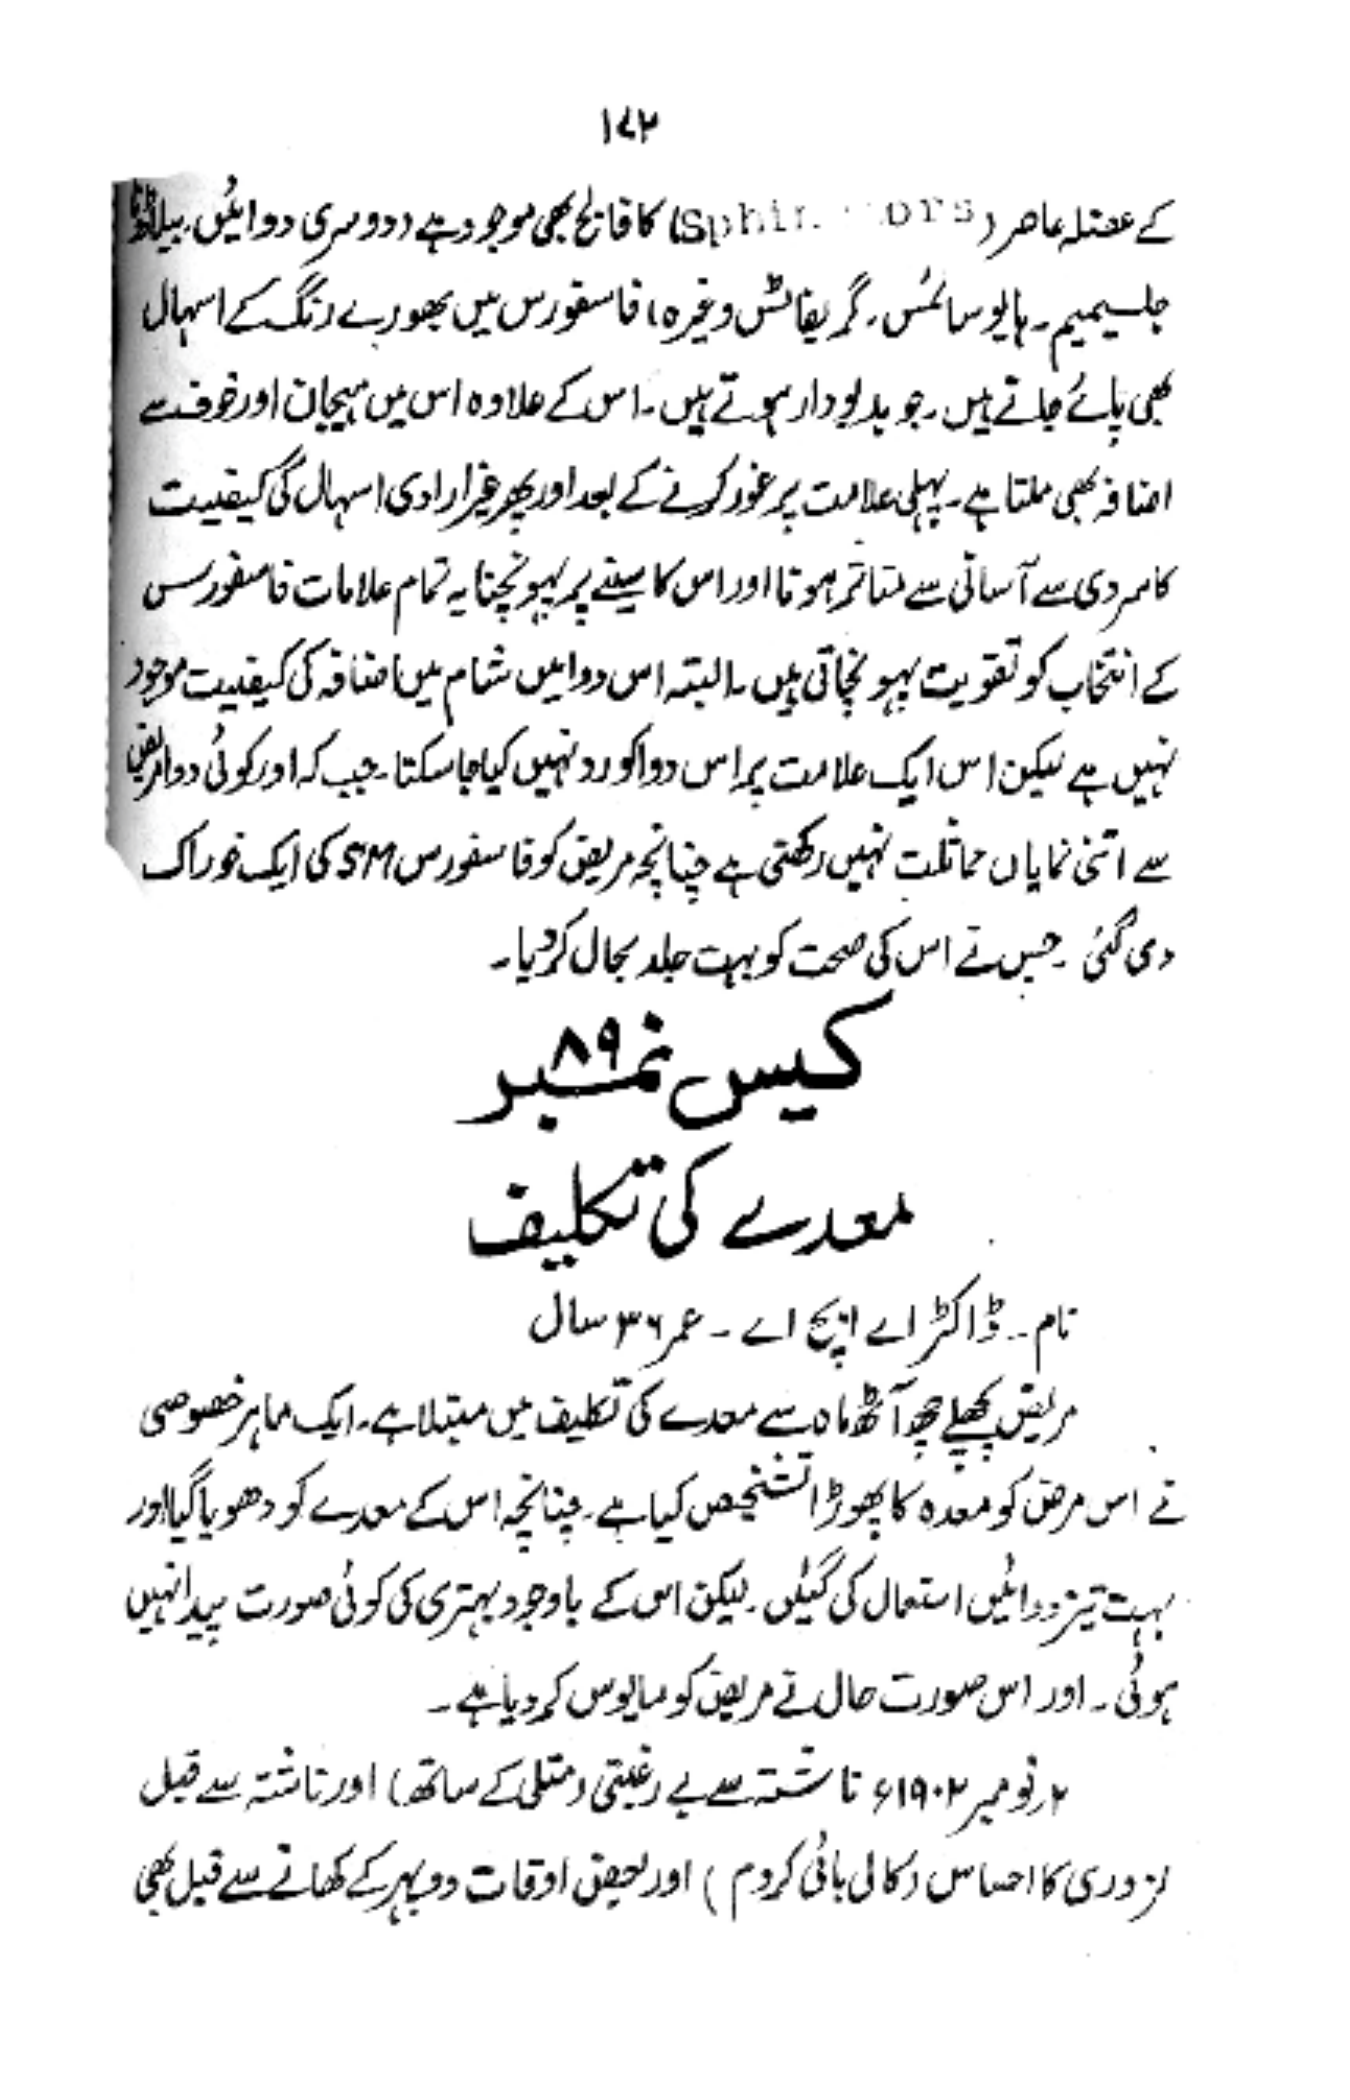 ۱۷۲
کے عضلہ عاصر (Sphinctors) کا فالج بھی موجود ہے (دوسری دوائیں۔ بیلاڈونا
جلسیمیم۔ ہایوسائمس۔ گریفائٹس وغیرہ) فاسفورس میں بھورے رنگ کے اسہال
بھی پائے جاتے ہیں۔ جو بدبودار ہوتے ہیں۔ اس کے علاوہ اس میں ہیجان اور خوف سے
اضافہ بھی ملتا ہے۔ پہلی علامت پر غور کرنے کے بعد اور پھر غیر ارادی اسہال کی کیفیت
کا سردی سے آسانی سے متاثر ہونا اور اس کا سینے پر پہونچنا یہ تمام علامات فاسفورس
کے انتخاب کو تقویت پہونچاتی ہیں۔ البتہ اس دوا میں شام میں اضافہ کی کیفیت موجود
نہیں ہے لیکن اس ایک علامت پر اس دوا کو رد نہیں کیا جا سکتا۔ جب کہ اور کوئی دوا مریض
سے اتنی نمایاں مماثلت نہیں رکھتی ہے چنانچہ مریض کو فاسفورس 5M کی ایک خوراک
دی گئی۔ جس نے اس کی صحت کو بہت جلد بحال کر دیا۔
کیس نمبر ۸۹
معدے کی تکلیف
نام۔ ڈاکٹر اے ایچ اے ۔ عمر ۳۶ سال
مریض پچھلے چھ آٹھ ماہ سے معدے کی تکلیف میں مبتلا ہے۔ ایک ماہر خصوصی
نے اس مرض کو معدہ کا پھوڑا تشخیص کیا ہے۔ چنانچہ اس کے معدے کو دھویا گیا اور
بہت تیز دوائیں استعمال کی گئیں۔ لیکن اس کے باوجود بہتری کی کوئی صورت پیدا نہیں
ہوئی۔ اور اس صورت حال نے مریض کو مایوس کر دیا ہے۔
۲؍نومبر ۱۹۰۲ء ناشتہ سے بے رغبتی (متلی کے ساتھ) اور ناشتہ سے قبل
لزوری کا احساس (کالی بائی کروم) اور بعض اوقات دوپہر کے کھانے سے قبل بھی